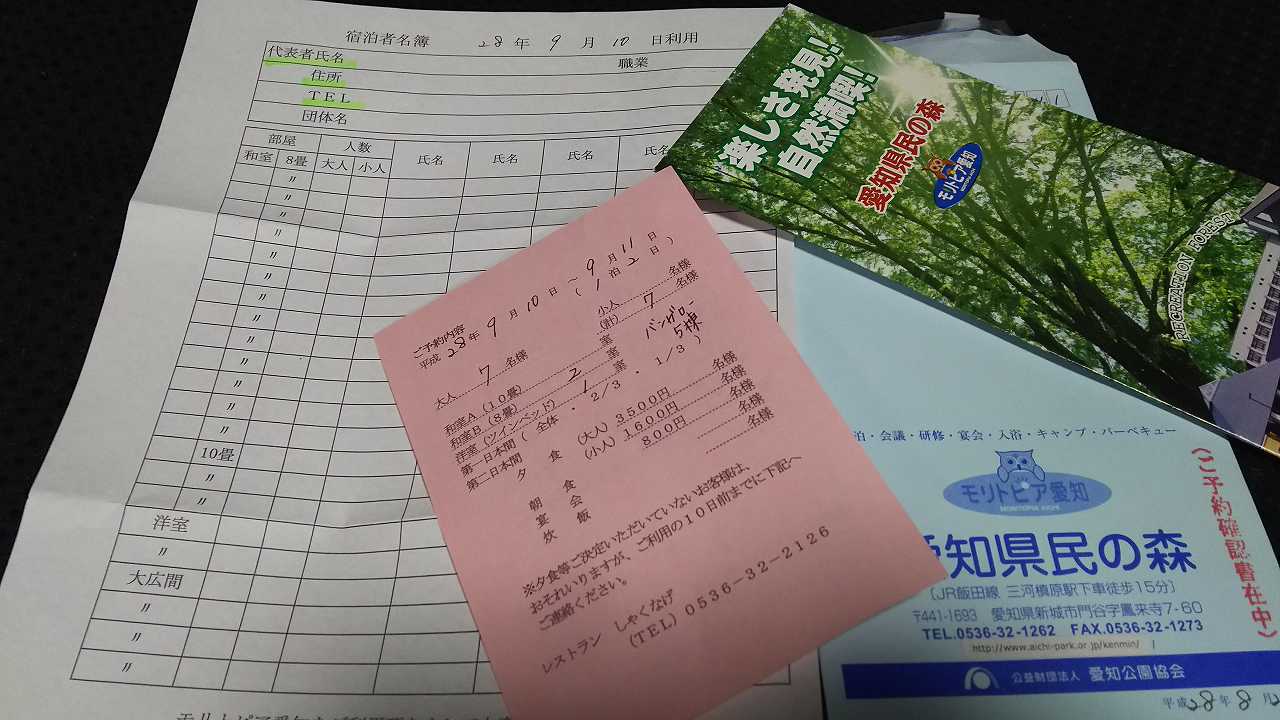 宿泊者名簿 28年 9月 10日利用
代表者氏名 職業
住所
TEL
団体名
部屋 人数
和室 8畳 大人 小人 氏名 氏名 氏名 氏名
〃
〃
〃
〃
〃
〃
〃
〃
〃
〃
〃
〃
〃
10畳
〃
〃
洋室
〃
大広間
〃
〃
〃
ご予約内容
平成28年9月10日〜9月11日
(1泊2日)
大人 7名様 小人 名様
(計) 7名様
和室A(10畳) 室 バンガロー
和室B(8畳) 2室 5棟
洋室(ツインベッド) 1室
第一日本間(全体・2/3・1/3)
第二日本間
夕食 (大人)3500円 名様
(小人)1600円 名様
朝食 800円 名様
宴会 名様
炊飯
※夕食等ご決定いただいていないお客様は、
おそれいりますが、ご利用の10日前までに下記へ
ご連絡ください。
レストラン しゃくなげ
(TEL)0536-32-2126
楽しさ発見!
自然満喫!
愛知県民の森
モリトピア愛知
RECREATION FOREST
泊・会議・研修・宴会・入浴・キャンプ・バーベキュー
モリトピア愛知
MORITOPIA AICHI
知県民の森
(ご予約確認書在中)
〔JR飯田線 三河槙原駅下車徒歩15分〕
〒441-1693 愛知県新城市門谷字鳳来寺7-60
TEL.0536-32-1262 FAX.0536-32-1273
http://www.aichi-park.or.jp/kenmin/
公益財団法人 愛知公園協会
平成28年8月